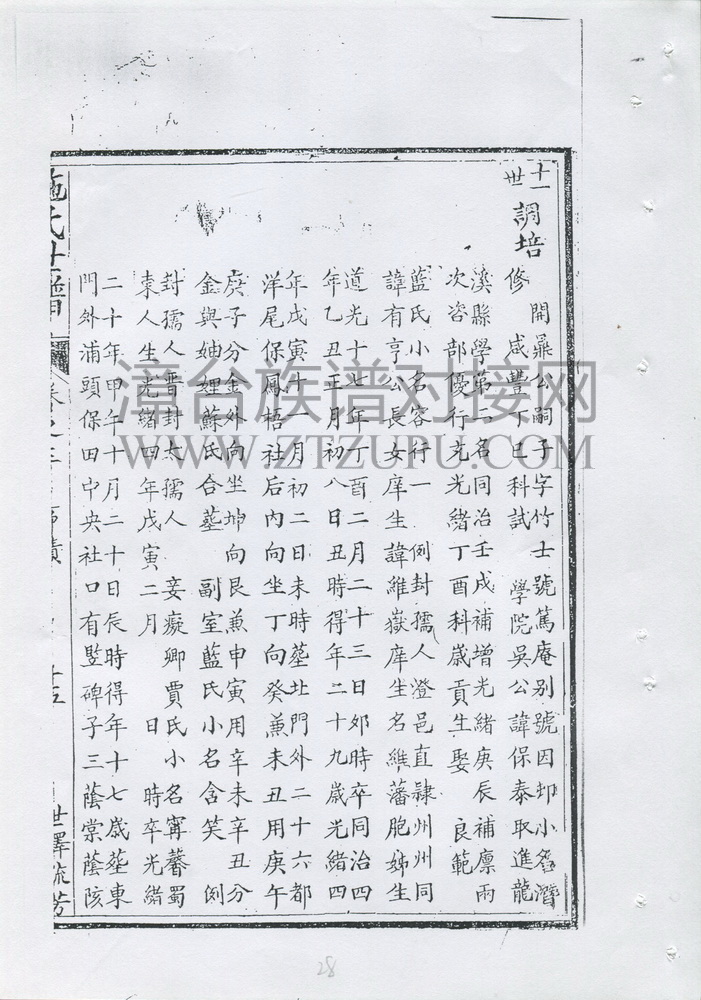 十一世 調培
開鼎公嗣子字竹士號篤庵别號因邨小名潛
修 咸豐丁巳科試 學院吳公諱保泰取進龍
溪縣學第二名同治壬戌補增光緒庚辰補廪兩
次咨部優行充光緒丁酉科歲貢生娶 良範
藍氏小名容行一 例封孺人澄邑直隸州州同
諱有亨公長女庠生諱維嶽庠生名維藩胞姊生
道光十七年丁酉二月二十三日卯時卒同治四
年乙丑正月初八日丑時得年二十九歲光緒四
年戊寅十一月初二日未時塟北門外二十六都
洋尾保鳳梧社后內向坐丁向癸兼未丑用庚午
庚子分金外向坐坤向艮兼申寅用辛未辛丑分
金與妯娌蘇氏合墓 副室藍氏小名含笑 例
封孺人晋封太孺人 妾癡卿賈氏小名甯馨蜀
東人生光緒四年戊寅二月 日 時卒光緒
二十年甲午十月二十日辰時得年十七歲塟東
門外浦頭保田中央社口有竪碑子三蔭棠蔭陔
施氏世譜 卷之 事蹟 十五 世澤流芳
漳台族谱对接网
WWW.ZTZUPU.COM
28